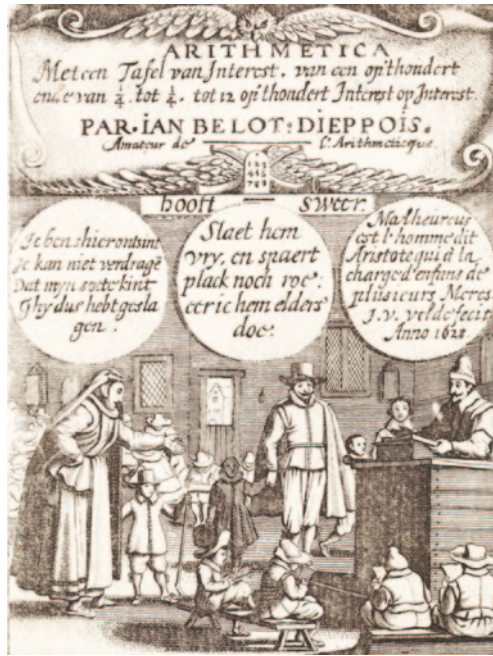 ARITHMETICA
Met een Tafel van Interest, van een op't hondert
ende van 1/4 tot 1/4, tot 12 op't hondert Interest op Interest.
PAR·IAN BELOT: DIEPPOIS.
Amateur de L'Arithmeticque
hooft sweer.
Ic ben hier ontsint
ic kan niet verdragẽ
Dat myn soete kint
Ghy dus hebt gesla
gen:
Slaet hem
vry, en spaert
plack noch roe:
eer ic hem elders
doe:
Malheureus
est l'homme dit
Aristote qui a la
charge d'enfans de
plusieurs Meres
J.V. velde fecit
Anno 1628